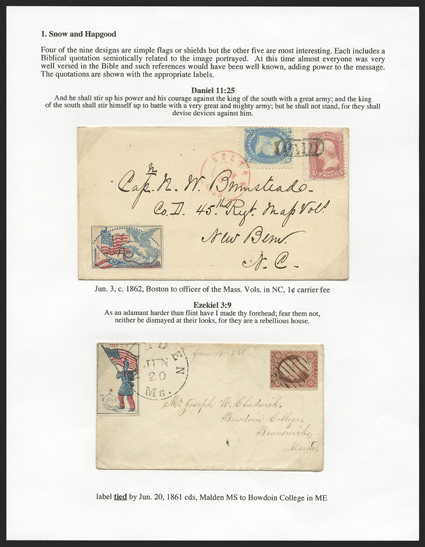 1. Snow and Hapgood
Four of the nine designs are simple flags or shields but the other five are most interesting. Each includes a
Biblical quotation semiotically related to the image portrayed. At this time almost everyone was very
well versed in the Bible and such references would have been well known, adding power to the message.
The quotations are shown with the appropriate labels.
Daniel 11:25
And he shall stir up his power and his courage against the king of the south with a great army; and the king
of the south shall stir himself up to battle with a very great and mighty army; but he shall not stand, for they shall
devise devices against him.
BOSTON
PAID
Capn N. W. Bumsteade
Co. D. 45th Regt. Mass Vols.
New Bern
N. C.
Jun. 3, c. 1862, Boston to officer of the Mass. Vols. in NC, 1¢ carrier fee
Ezekiel 3:9
As an adamant harder than flint have I made thy forehead; fear them not,
neither be dismayed at their looks, for they are a rebellious house.
JUN
20
Ms.
Mr. Joseph W. Chadwick
Bowdoin College
Brunswick
Maine
label tied by Jun. 20, 1861 cds, Malden MS to Bowdoin College in ME